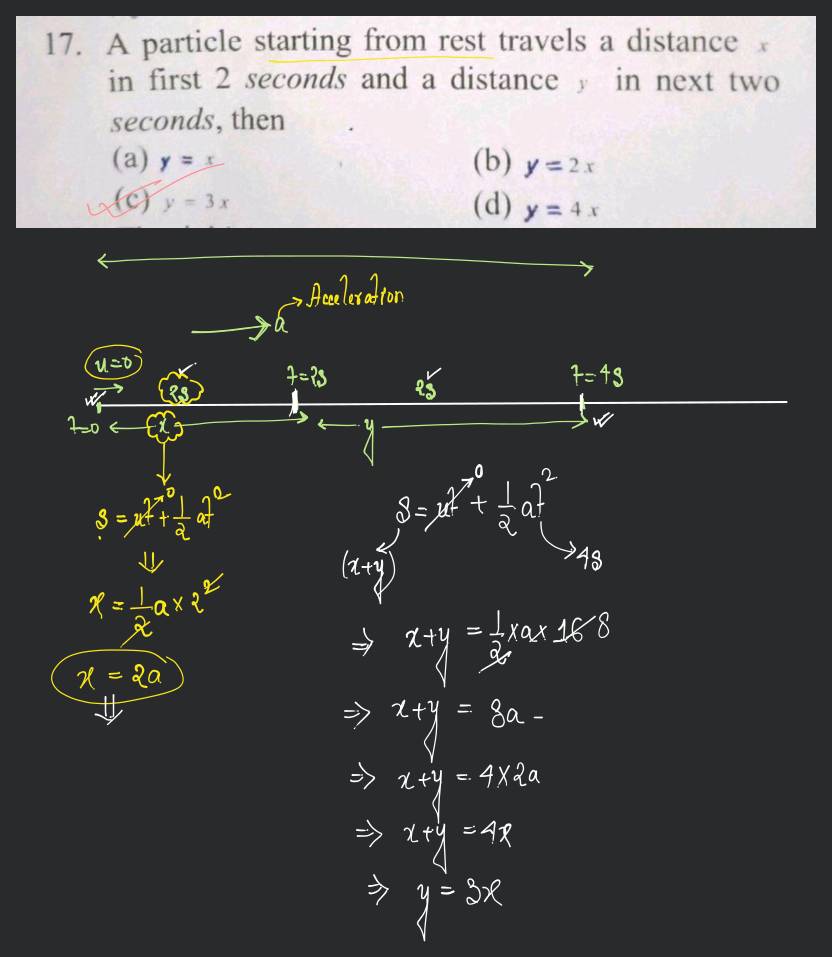 17. A particle starting from rest travels a distance x
in first 2 seconds and a distance y in next two
seconds, then
(a) y = x
(b) y = 2x
(c) y = 3x
(d) y = 4x
Acceleration
a
u=0
2s
t=2s
2s
t=4s
t=0
x
y
s = ut⁰ + 1/2 at²
x = 1/2 a × 2²
x = 2a
s = ut⁰ + 1/2 at²
(x+y)
4s
⇒ x+y = 1/2 × a × 16 8
⇒ x+y = 8a -
⇒ x+y = 4×2a
⇒ x+y = 4x
⇒ y = 3x